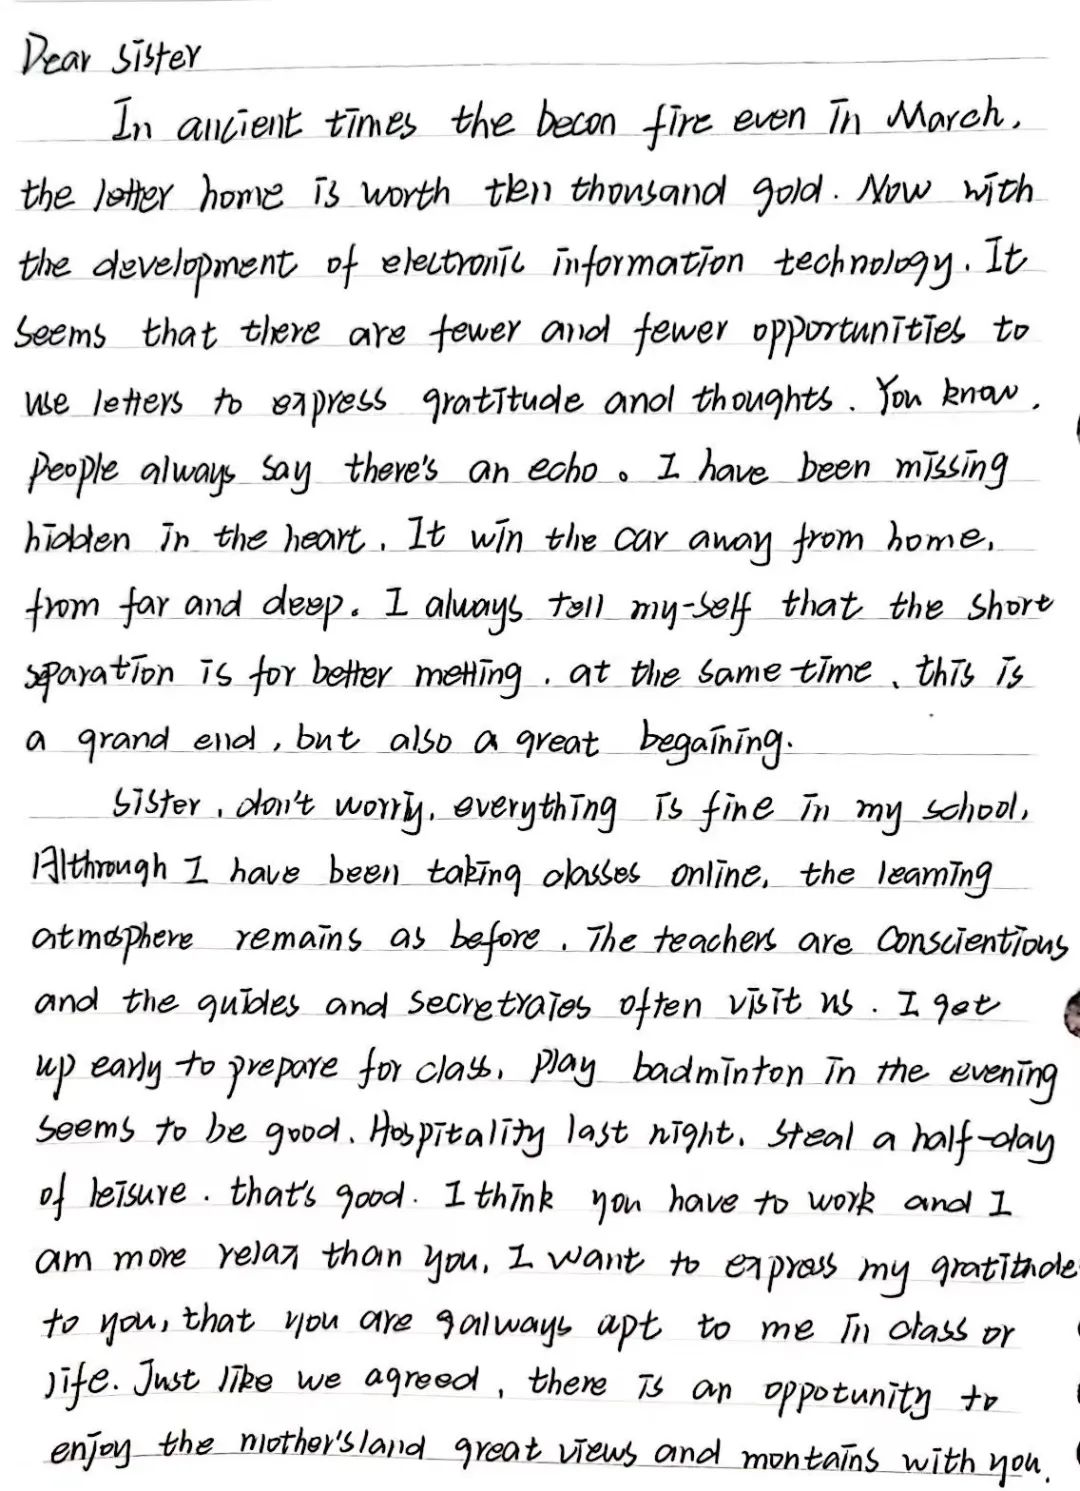 Dear sister
In ancient times the becon fire even in March,
the letter home is worth tken thousand gold. Now with
the development of electronic information technology. It
seems that there are fewer and fewer opportunities to
use letters to express gratitude and thoughts. You know,
People always say there's an echo。I have been missing
hidden in the heart. It win the car away from home,
from far and deep. I always tell my-self that the short
separation is for better metting. at the same time、this is
a grand end, but also a great begaining.
sister, don't worriy, everything is fine in my school,
Althrough I have been taking classes online, the learning
atmosphere remains as before. The teachers are Conscientious
and the guides and secretraies often visit us. I get
up early to prepare for class, play badminton in the evening
seems to be good. Hospitality last night, steal a half-day
of leisure. that's good. I think you have to work and I
am more relax than you, I want to express my gratitude
to you, that you are galways apt to me in class or
life. Just like we agreed, there is an oppotunity to
enjoy the mother'sland great views and montains with you.